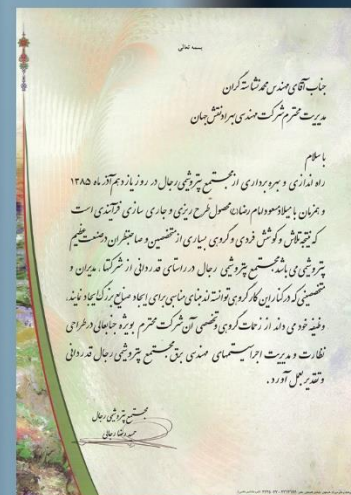 بسمه تعالی
جناب آقای مهندس محمد نشاسته گران
مدیریت محترم شرکت مهندسی بهراد نقش جهان
با سلام
راه اندازی و بهره برداری از مجتمع پتروشیمی رجال در روز یازدهم آذر ماه ۱۳۸۵
و همزمان با میلاد مسعود امام رضا محصول طرح ریزی و جاری سازی فرآیندی است
که نتیجه تلاش و کوشش فردی و گروهی بسیاری از متخصصین و صاحبنظران در صنعت عظیم
پتروشیمی می باشد. مجتمع پتروشیمی رجال در راستای قدردانی از شرکتها، مدیران و
متخصصینی که در کنار این کار گروهی توانستند بنای مناسبی برای ایجاد صنایع بزرگ ایجاد نمایند.
وظیفه خود می داند از زحمات گروهی و تخصصی آن شرکت محترم بویژه جنابعالی در طراحی
نظارت و مدیریت اجرا سیستمهای مهندسی برق مجتمع پتروشیمی رجال قدردانی
و تقدیر بعمل آورد.
مجتمع پتروشیمی رجال
حمید رضا رجالی